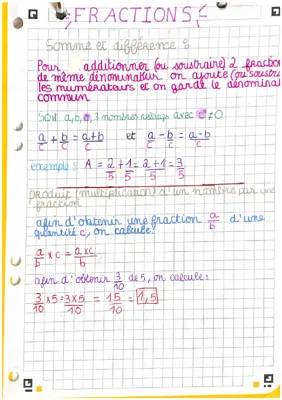 FRACTIONS
Somme et différence :
Pour additionner (ou soustraire) 2 fraction
de même dénominateur on ajoute (ou soustrait
les numérateurs et on garde le dénominat
commun
Soit a, b, c, 3 nombres relatifs avec c≠0
a/c + b/c = a+b/c et a/c - b/c = a-b/c
exemple : A = 2/5 + 1/5 = 2+1/5 = 3/5
produit (multiplication) d'un nombre par une
fraction
afin d'obtenir une fraction a/b d'une
quantité c, on calcule :
a/b × c = a×c/b
afin d'obtenir 3/10 de 5, on calcule :
3/10 × 5 = 3×5/10 = 15/10 = 1,5